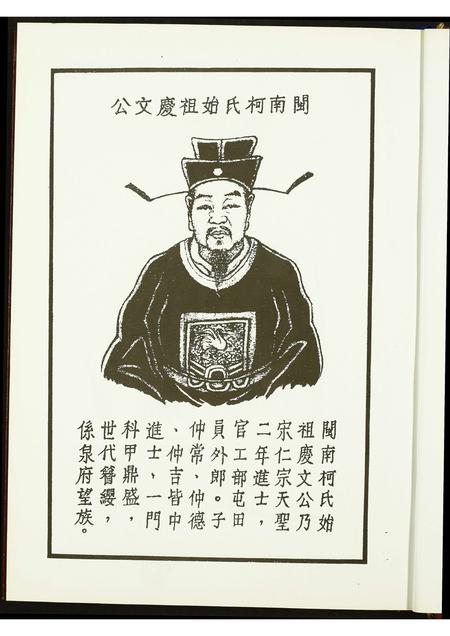 閩南柯氏始祖慶文公
閩南柯氏始
祖慶文公乃
宋仁宗天聖
二年進士，
官工部屯田
員外郎。子
仲常、仲德
、仲吉皆中
進士，一門
科甲鼎盛，
世代簪纓，
係泉府望族。